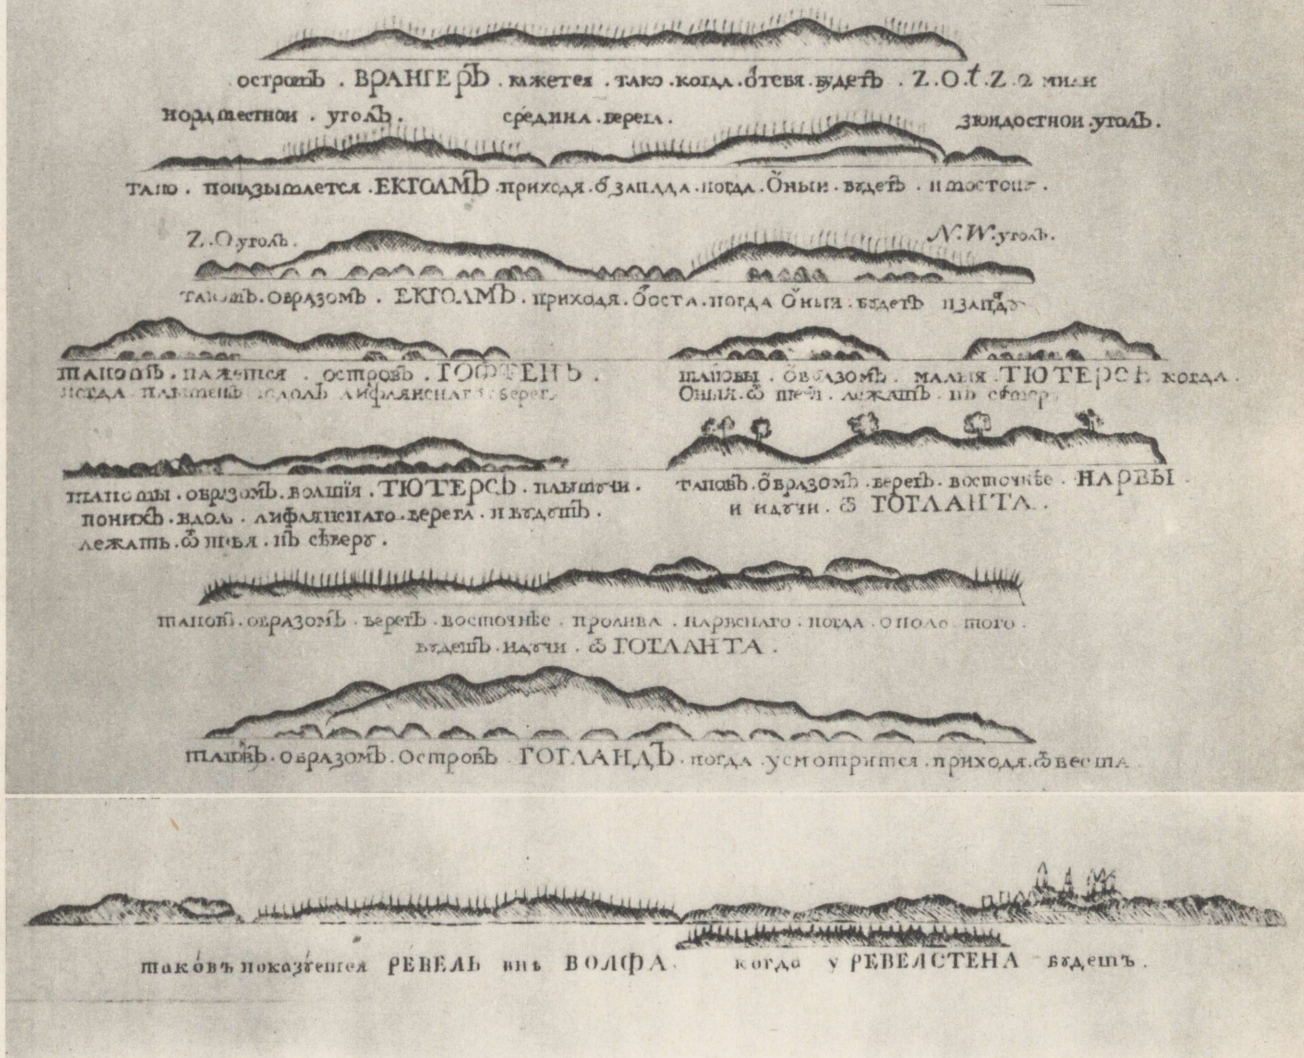 островЪ . ВРАНГЕРЪ . кажетея . тако . когда . ѿтебя . будетъ . Z.O.t.Z. 2 мили
нордвестнои . уголЪ . средина . берега . зюидостнои . уголЪ .
тако . показывается . ЕКГОЛМЪ . приходя . ѿ запада . когда . Оныи . будетъ . к востоку .
Z.O уголъ . N.W. уголъ .
такимЪ . образомЪ . ЕКГОЛМЪ . приходя . ѿоста . когда Оныи . будетъ к западу
таковЪ . кажется . островЪ . ГОФТЕНЪ .
когда плывешЪ вдоль лифлянскаго берега
таковы . образомЪ . малыя . ТЮТЕРСЪ когда .
Оныя . ѿ тебя . лежатЪ . къ северу
таковы . образомЪ . волшїя . ТЮТЕРСЪ . плывучи .
понихЪ . вдоль . лифлянскаго . берега . и будутЪ .
лежать . ѿ тебя . къ сѣверу .
таковЪ . образомЪ . берегЪ . восточнѣе . НАРВЫ .
и идучи . ѿ ГОГЛАНТА .
таковЪ . образомЪ . берегЪ . восточнѣе . пролива . нарвскаго . когда . около того .
будешЪ . идучи . ѿ ГОГЛАНТА .
таковЪ . образомЪ . Островъ . ГОГЛАНДЪ . когда . усмотрится . приходя . ѿвеста .
таковъ показуется РЕВЕЛЬ внѣ ВОЛФА . когда у РЕВЕЛСТЕНА будешъ .